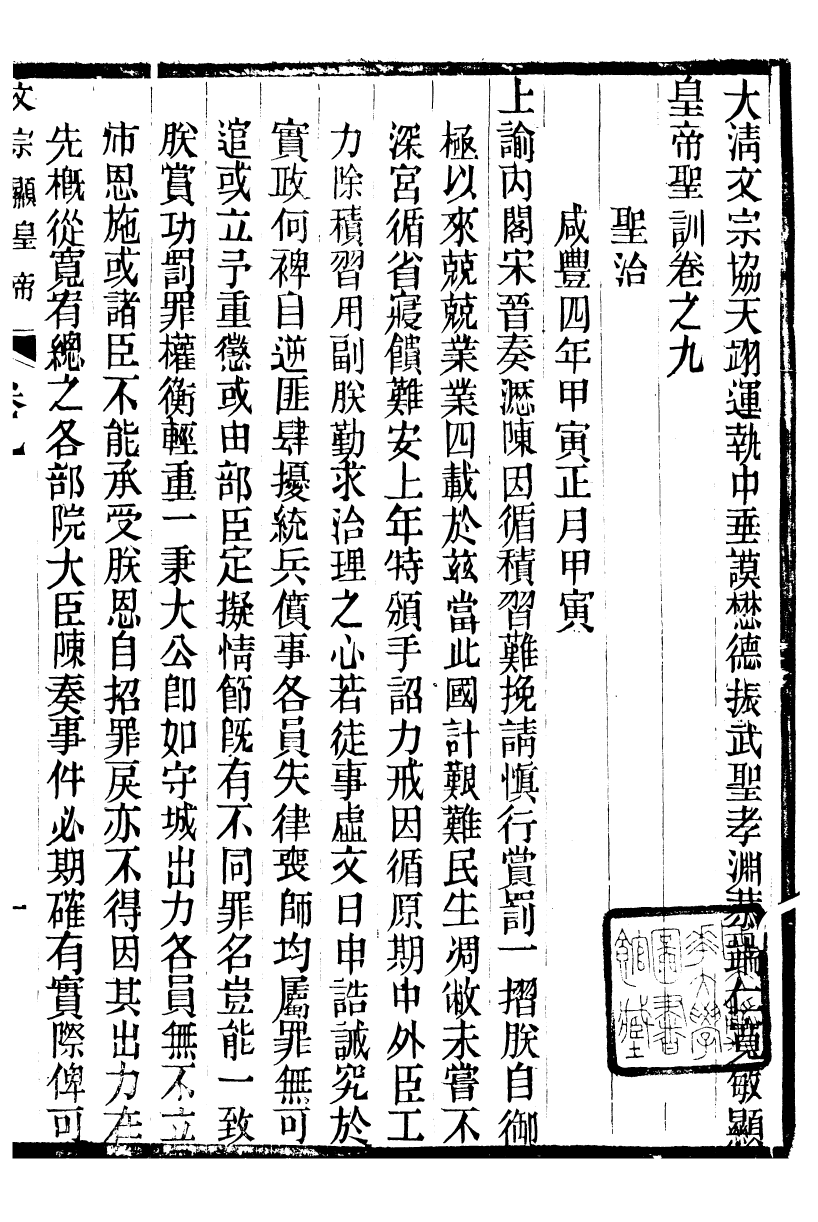 大清文宗協天翊運執中垂謨懋德振武聖孝淵恭端仁寬敏顯
皇帝聖訓卷之九
聖治
咸豐四年甲寅正月甲寅
上諭內閣宋晉奏瀝陳因循積習難挽請慎行賞罰一摺朕自御
極以來兢兢業業四載於兹當此國計艱難民生凋敝未嘗不
深宮循省寢饋難安上年特頒手詔力戒因循原期中外臣工
力除積習用副朕勤求治理之心若徒事虛文日申誥誡究於
實政何裨自逆匪肆擾統兵僨事各員失律喪師均屬罪無可
逭或立予重懲或由部臣定擬情節既有不同罪名豈能一致
朕賞功罰罪權衡輕重一秉大公即如守城出力各員無不立
沛恩施或諸臣不能承受朕恩自招罪戾亦不得因其出力在
先概從寬宥總之各部院大臣陳奏事件必期確有實際俾可
文宗顯皇帝
卷九
一
華大學
圖書
館藏